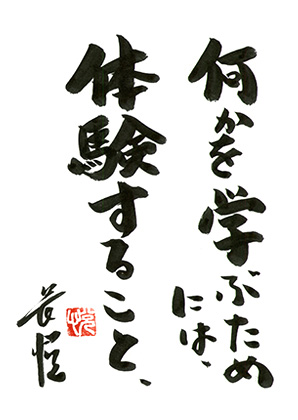 何かを学ぶため
には、
体験すること、